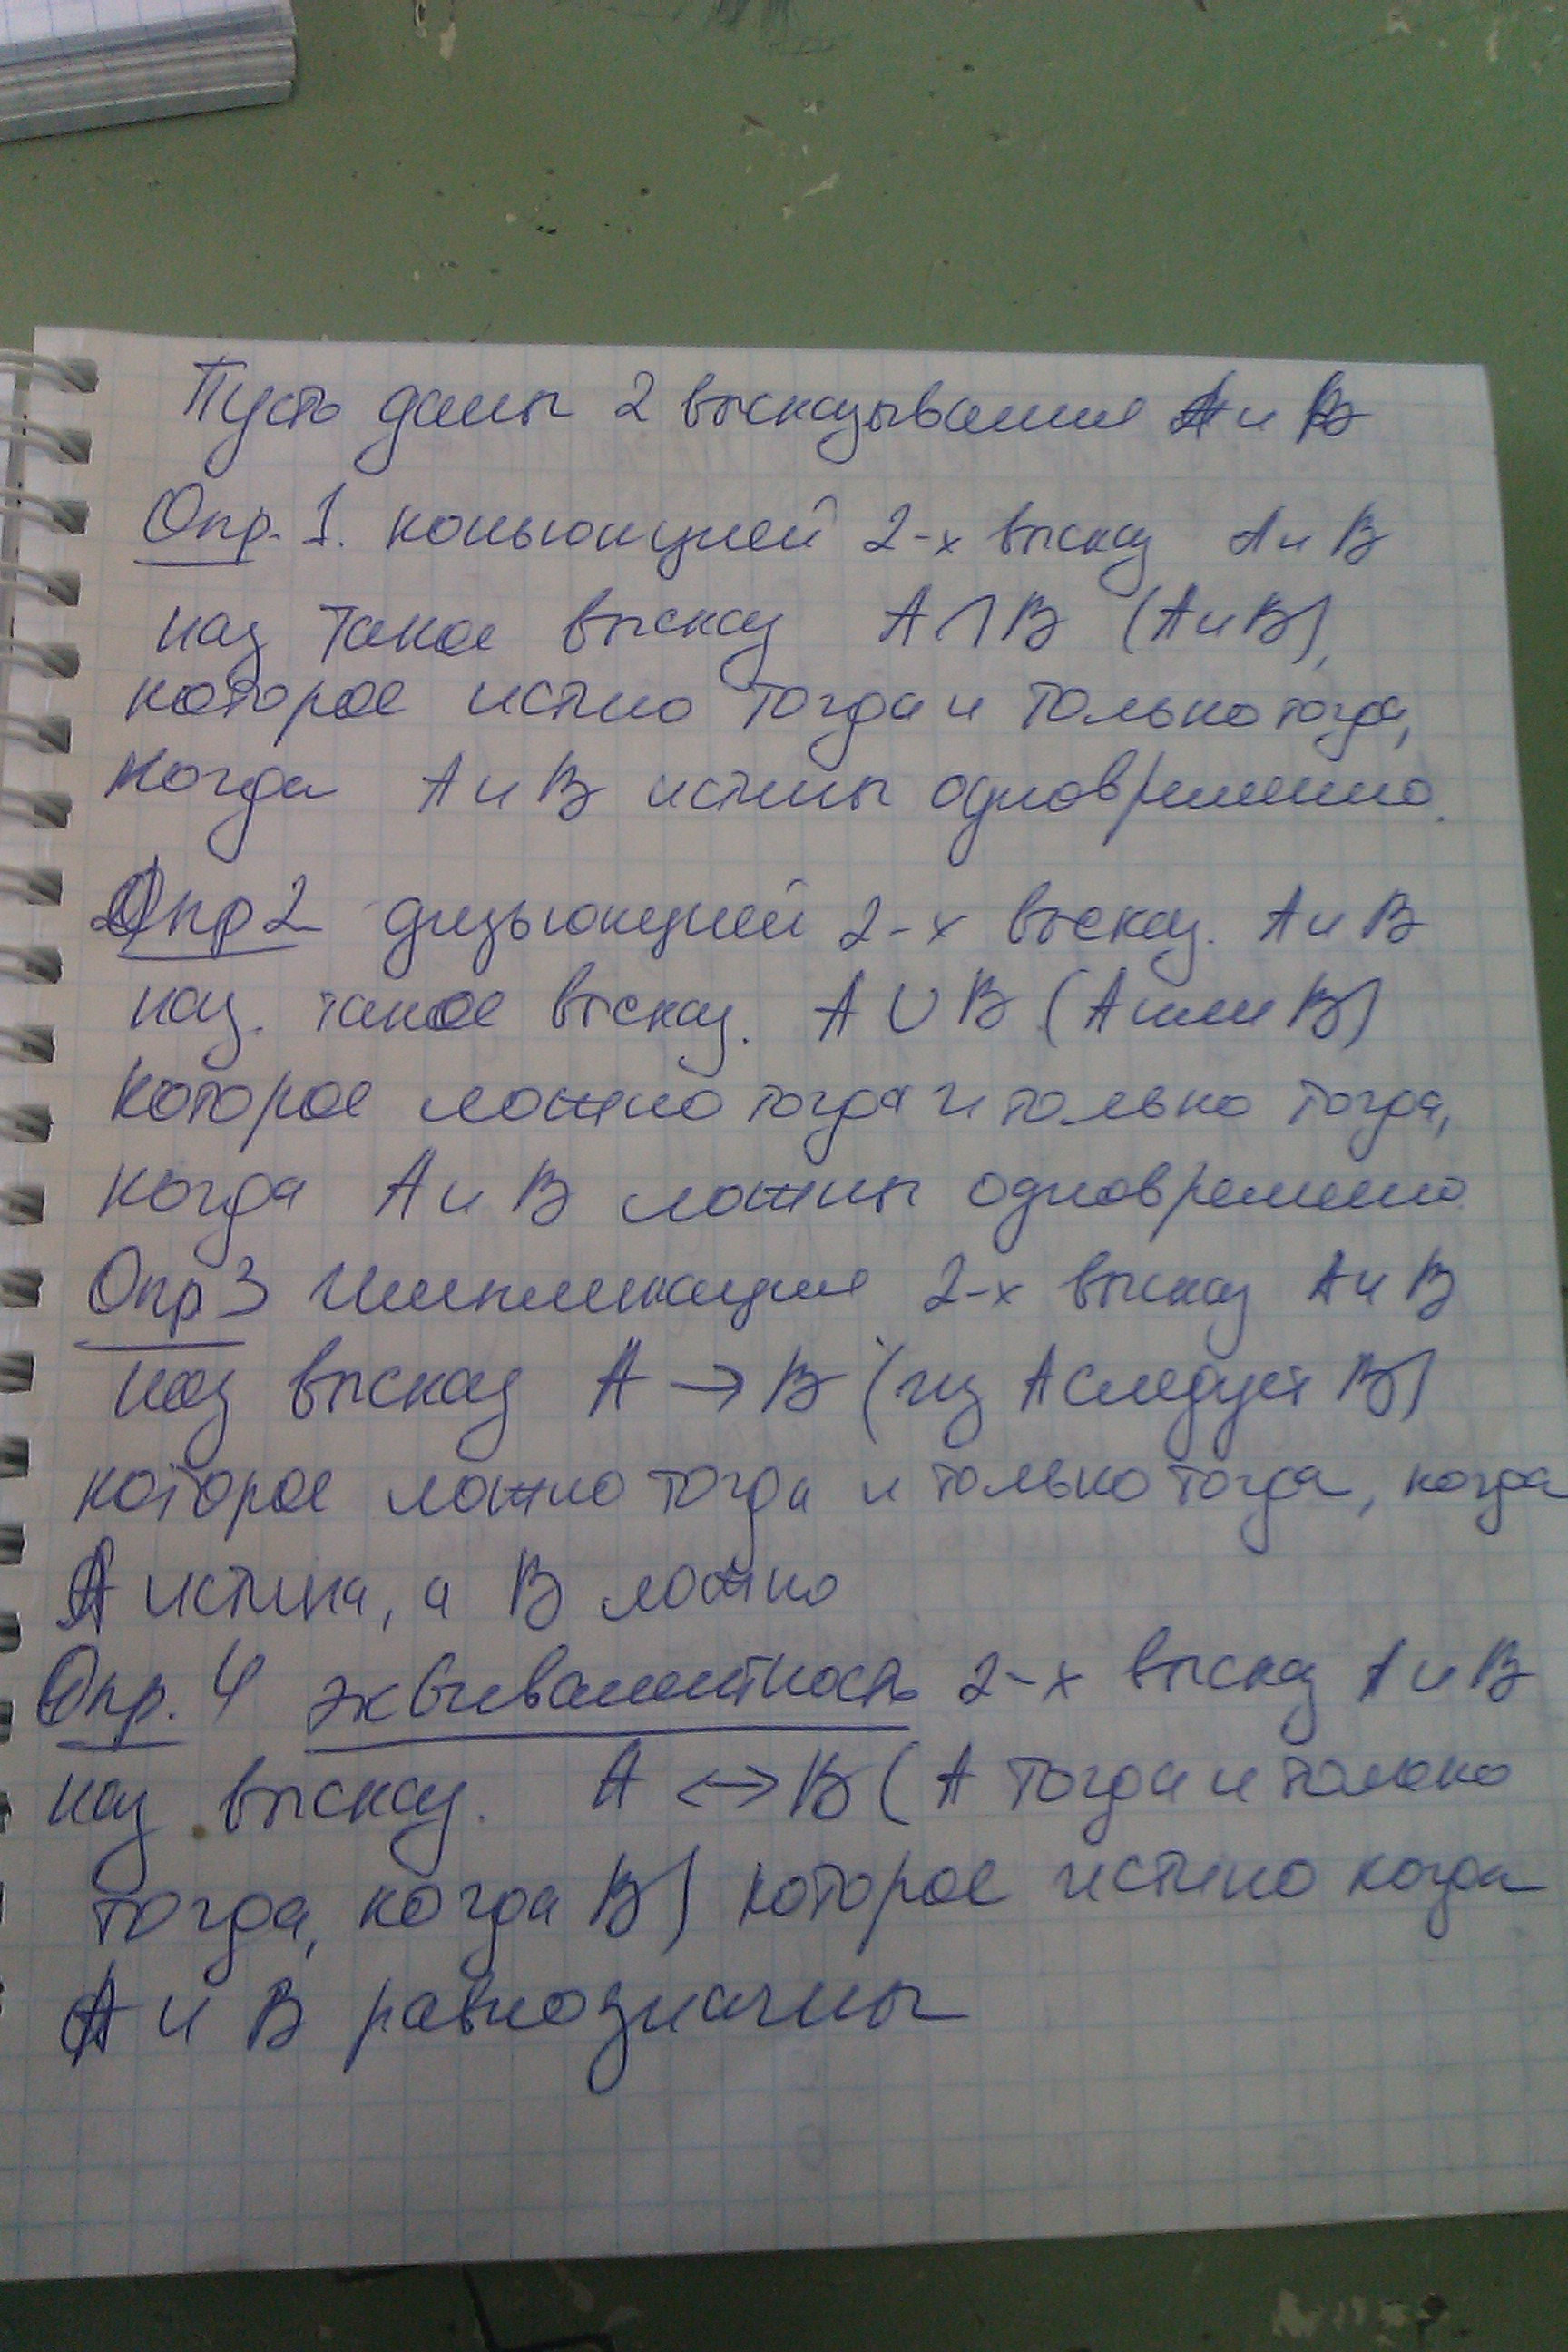 Пусть даны 2 высказывания А и В
Опр. 1. коньюкцией 2-х высказ А и В
наз такое высказ А ∩ В (А и В),
которое истино тогда и только тогда,
когда А и В истины одновременно.
Опр 2 дизьюкцией 2-х высказ. А и В
наз. такое высказ. А ∪ В (А или В)
которое ложно тогда и только тогда,
когда А и В ложны одновременно.
Опр 3 Импликация 2-х высказ А и В
наз высказ А → В (из А следует В)
которое ложно тогда и только тогда, когда
А истина, а В ложно
Опр. 4 эквивалентность 2-х высказ А и В
наз высказ. А ↔ В (А тогда и только
тогда, когда В) которое истино когда
А и В равнозначны